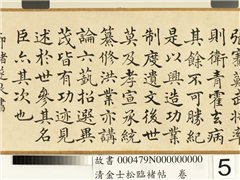 張騫蘇武將率
則衛青霍去病
其餘不可勝紀
是以興造功業
制度遺文後世
莫及孝宣承統
纂修洪業亦講
論六藝招選異
茂皆有功迹見
述於世參其名
臣亦其次也
褚遂良書
故書 000479N000000000
清金士松臨褚帖 卷
5